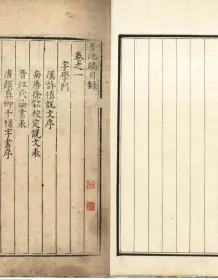 墨池編目錄
卷之一
字學門
漢許慎說文序
南唐徐鉉校定說文表
晉江式論書表
唐顏真卿干祿字書序